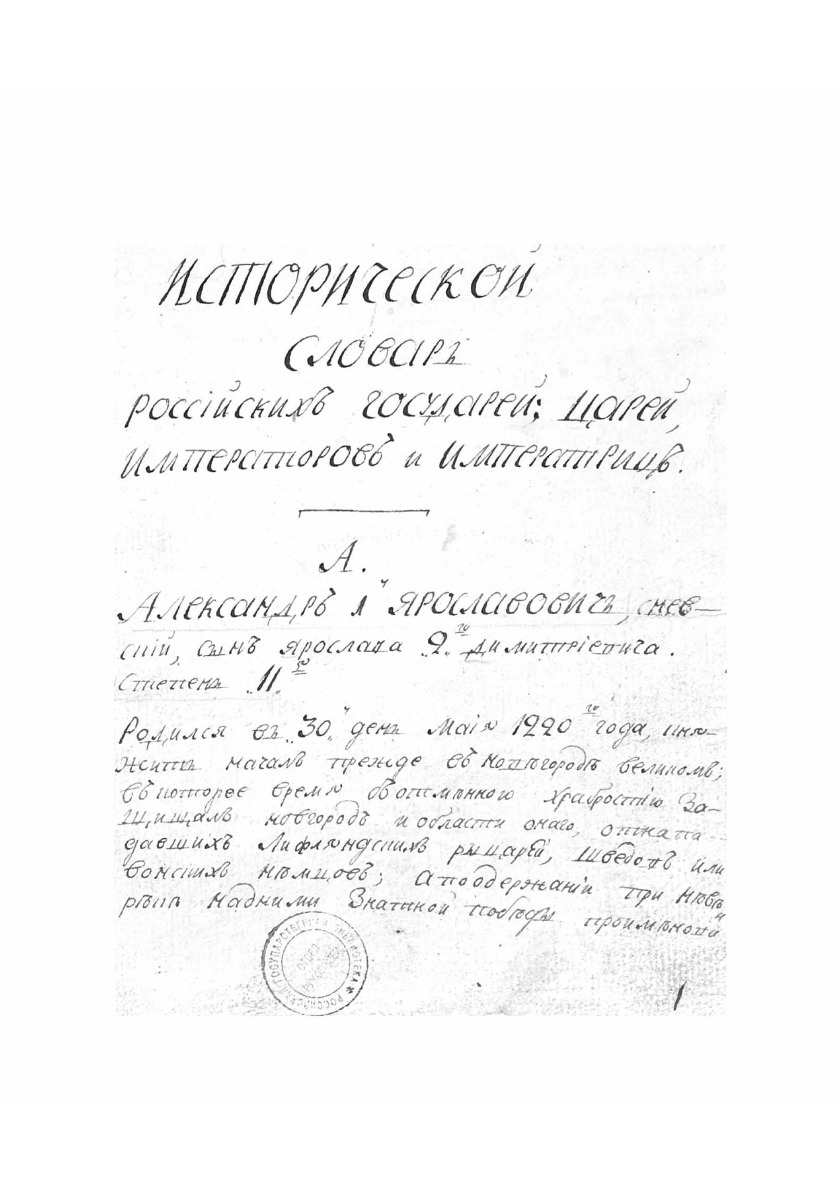 ИСТОРИЧЕСКОЙ
СЛОВАРЬ
РОССІЙСКИХЪ ГОСУДАРЕЙ; ЦАРЕЙ,
ИМПЕРАТОРОВЪ и ИМПЕРАТРИЦЪ.
А.
АЛЕКСАНДРЪ 1й ЯРОСЛАВОВИЧЬ, снев–
скій, сынъ Ярослава 2.го Димитріевича.
Степень 11.го
Родился въ 30.й день Маія 1220го года, кня–
жить началъ прежде въ новѣгородѣ великомъ;
въ которое время съ отмѣнною храбростію За–
щищалъ новгородъ и области онаго, отнапа–
давшихъ Лифляндскихъ рыцарей, Шведовъ или
вонскихъ нѣмцовъ; А поодержаніи при невѣ
рѣкѣ надними Знатной побѣды проимѣнованъ
РОССИЙСКАЯ ГОСУДАРСТВЕННАЯ БИБЛИОТЕКА
ОТДЕЛ
1